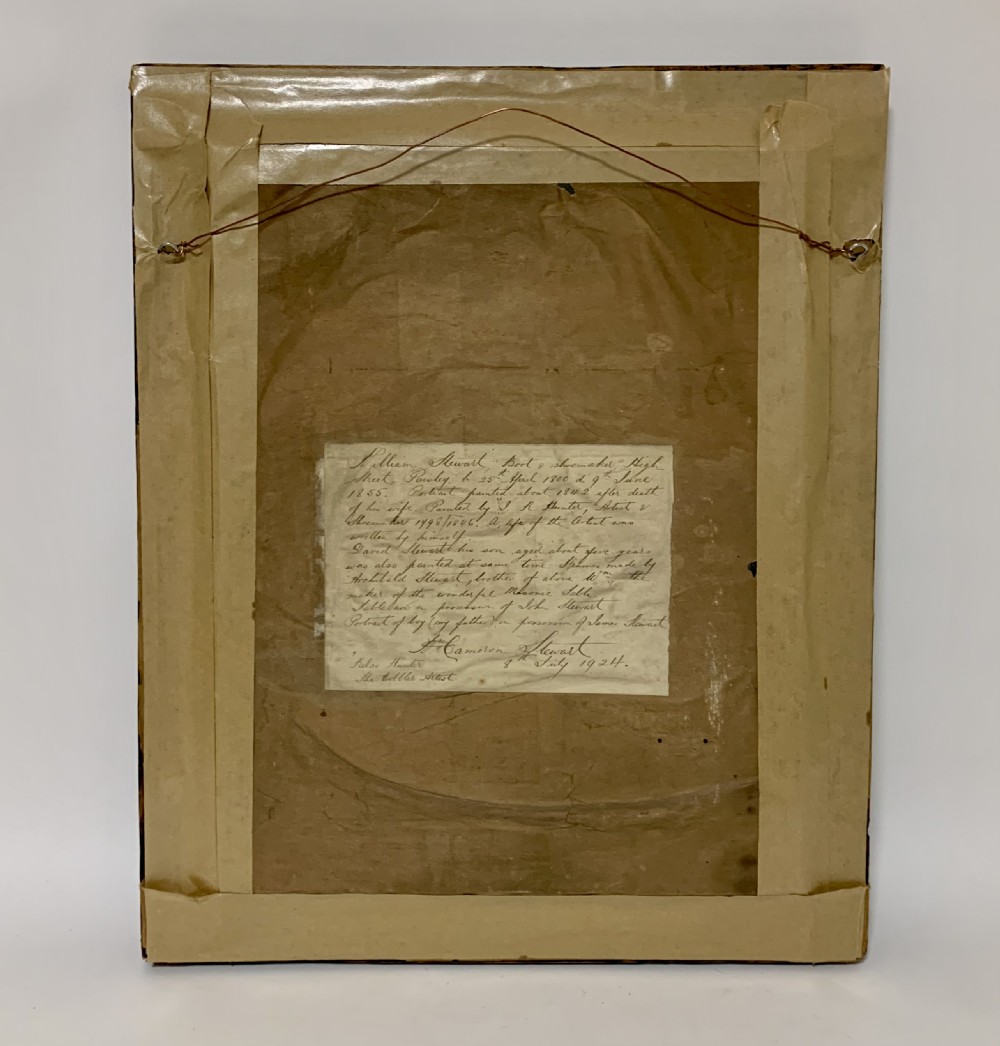 William Stewart Boot & shoemaker High
Street, Paisley b 25th April 1800 d 9th June
1855. Portrait painted about 1842 after death
of his wife. Painted by "J. K. Hunter, Artist &
Shoemaker 1798/1886. A life of the Artist was
written by himself.
David Stewart his son aged about five years
was also painted at same time. made by
Archibald Stewart, brother of above Wm the
maker of the wonderful Masonic Table
Table in possession of John Stewart
Portrait of boy (my father) in possession of James Stewart
Wm Cameron Stewart
8th July 1924.
" Hunter
The Cobbler Artist